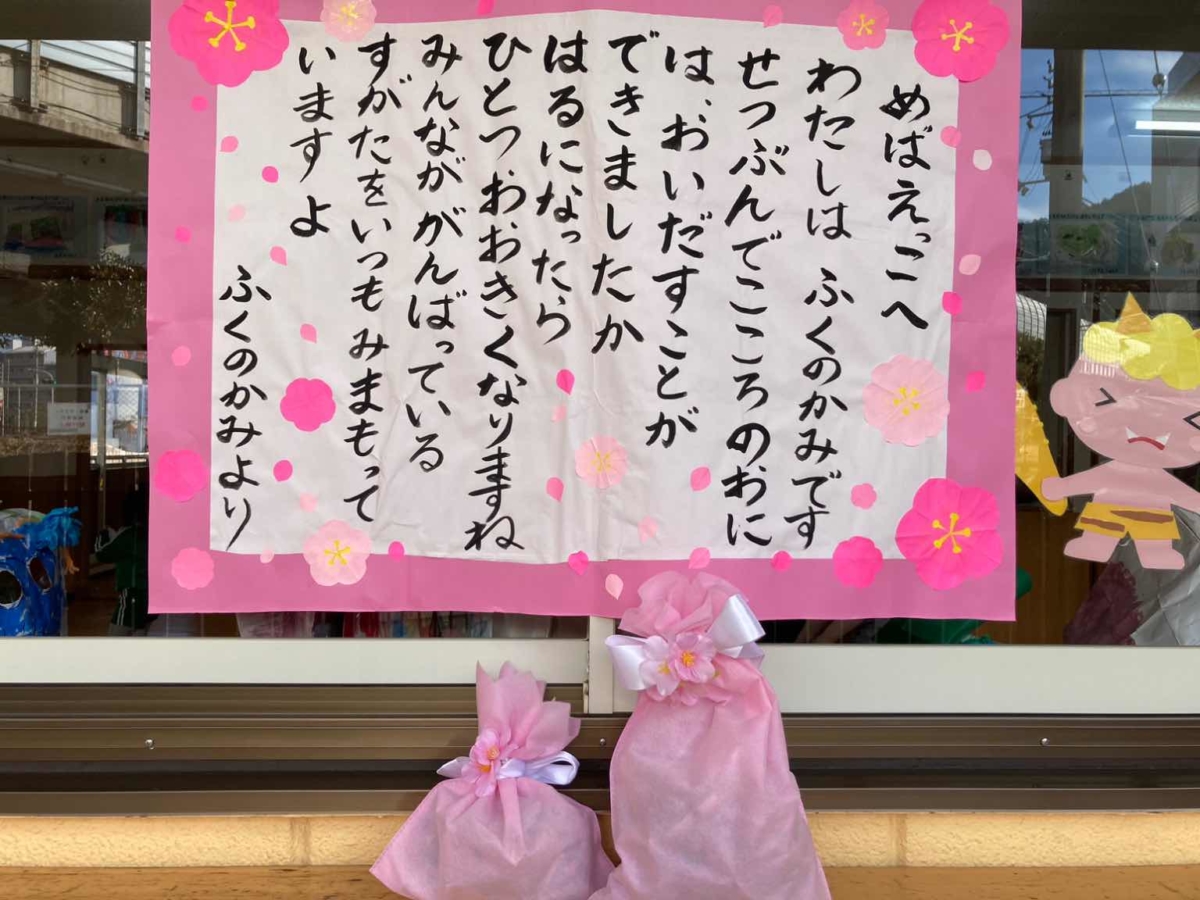 めばえっこへ
わたしは ふくのかみです
せつぶんでこころのおに
は、おいだすことが
できましたか
はるになったら
ひとつおおきくなりますね
みんながんばっている
すがたをいつもみまもって
いますよ
ふくのかみより